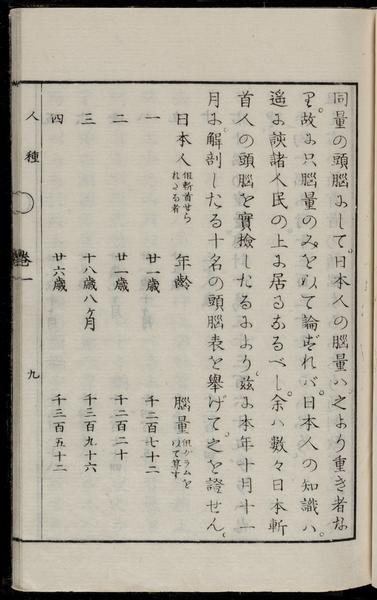 同量の頭脳にして。日本人の脳量ハ。之より重き者な
り。故に只脳量のみを以て論ずれバ。日本人の知識ハ。
遥に該諸人民の上に居るなるべし。余ハ數々日本斬
首人の頭脳を實撿したるにより。茲に本年十月十一
月に。解剖したる十名の頭脳表を擧げて。之を證せん。
日本人 但斬首せられたる者 年齢 脳量 但ガラムを以て算す
一 廿一歳 千二百七十二
二 廿一歳 千二百二十
三 十八歳八ヶ月 千三百九十六
四 廿六歳 千三百五十二
人種 巻一 九